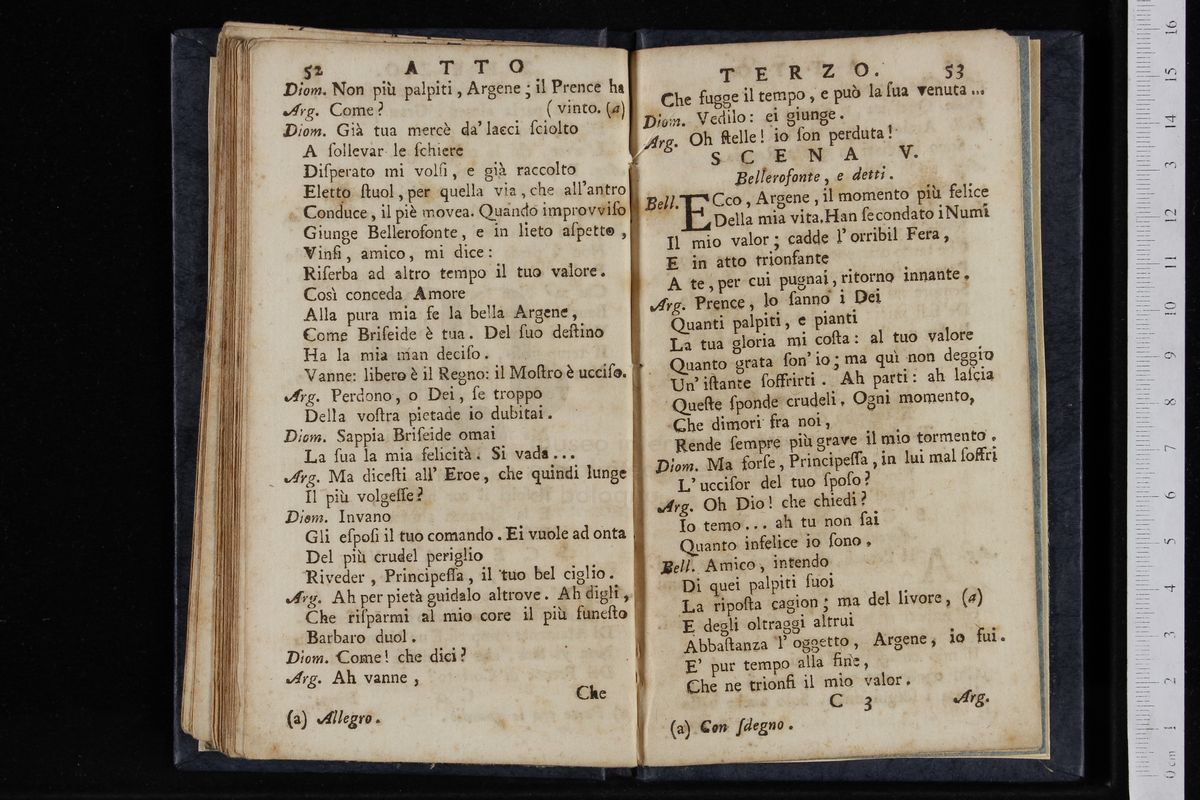 52 ATTO
Diom. Non più palpiti, Argene; il Prence ha
Arg. Come? (vinto. (a)
Diom. Già tua mercè da' lacci ſciolto
A ſollevar le ſchiere
Diſperato mi volſi, e già raccolto
Eletto ſtuol, per quella via, che all'antro
Conduce, il piè movea. Quando improvviſo
Giunge Bellerofonte, e in lieto aſpetto,
Vinſi, amico, mi dice:
Riſerba ad altro tempo il tuo valore.
Così conceda Amore
Alla pura mia fe la bella Argene,
Come Briſeide è tua. Del ſuo deſtino
Ha la mia man deciſo.
Vanne: libero è il Regno: il Moſtro è ucciſo.
Arg. Perdono, o Dei, ſe troppo
Della voſtra pietade io dubitai.
Diom. Sappia Briſeide omai
La ſua la mia felicità. Si vada...
Arg. Ma diceſti all' Eroe, che quindi lunge
Il più volgeſſe?
Diom. Invano
Gli eſpoſi il tuo comando. Ei vuole ad onta
Del più crudel periglio
Riveder, Principeſſa, il tuo bel ciglio.
Arg. Ah per pietà guidalo altrove. Ah digli,
Che riſparmi al mio core il più funeſto
Barbaro duol.
Diom. Come! che dici?
Arg. Ah vanne,
Che
(a) Allegro.
TERZO. 53
Che fugge il tempo, e può la ſua venuta...
Diom. Vedilo: ei giunge.
Arg. Oh ſtelle! io ſon perduta!
SCENA V.
Bellerofonte, e detti.
Bell. ECco, Argene, il momento più felice
Della mia vita. Han ſecondato i Numi
Il mio valor; cadde l'orribil Fera,
E in atto trionfante
A te, per cui pugnai, ritorno innante.
Arg. Prence, lo ſanno i Dei
Quanti palpiti, e pianti
La tua gloria mi coſta: al tuo valore
Quanto grata ſon' io; ma quì non deggio
Un' iſtante ſoffrirti. Ah parti: ah laſcia
Queſte ſponde crudeli. Ogni momento,
Che dimori fra noi,
Rende ſempre più grave il mio tormento.
Diom. Ma forſe, Principeſſa, in lui mal ſoffri
L'ucciſor del tuo ſpoſo?
Arg. Oh Dio! che chiedi?
Io temo... ah tu non ſai
Quanto infelice io ſono.
Bell. Amico, intendo
Di quei palpiti ſuoi
La ripoſta cagion; ma del livore, (a)
E degli oltraggi altrui
Abbaſtanza l'oggetto, Argene, io fui.
E' pur tempo alla fine,
Che ne trionfi il mio valor.
C 3 Arg.
(a) Con ſdegno.